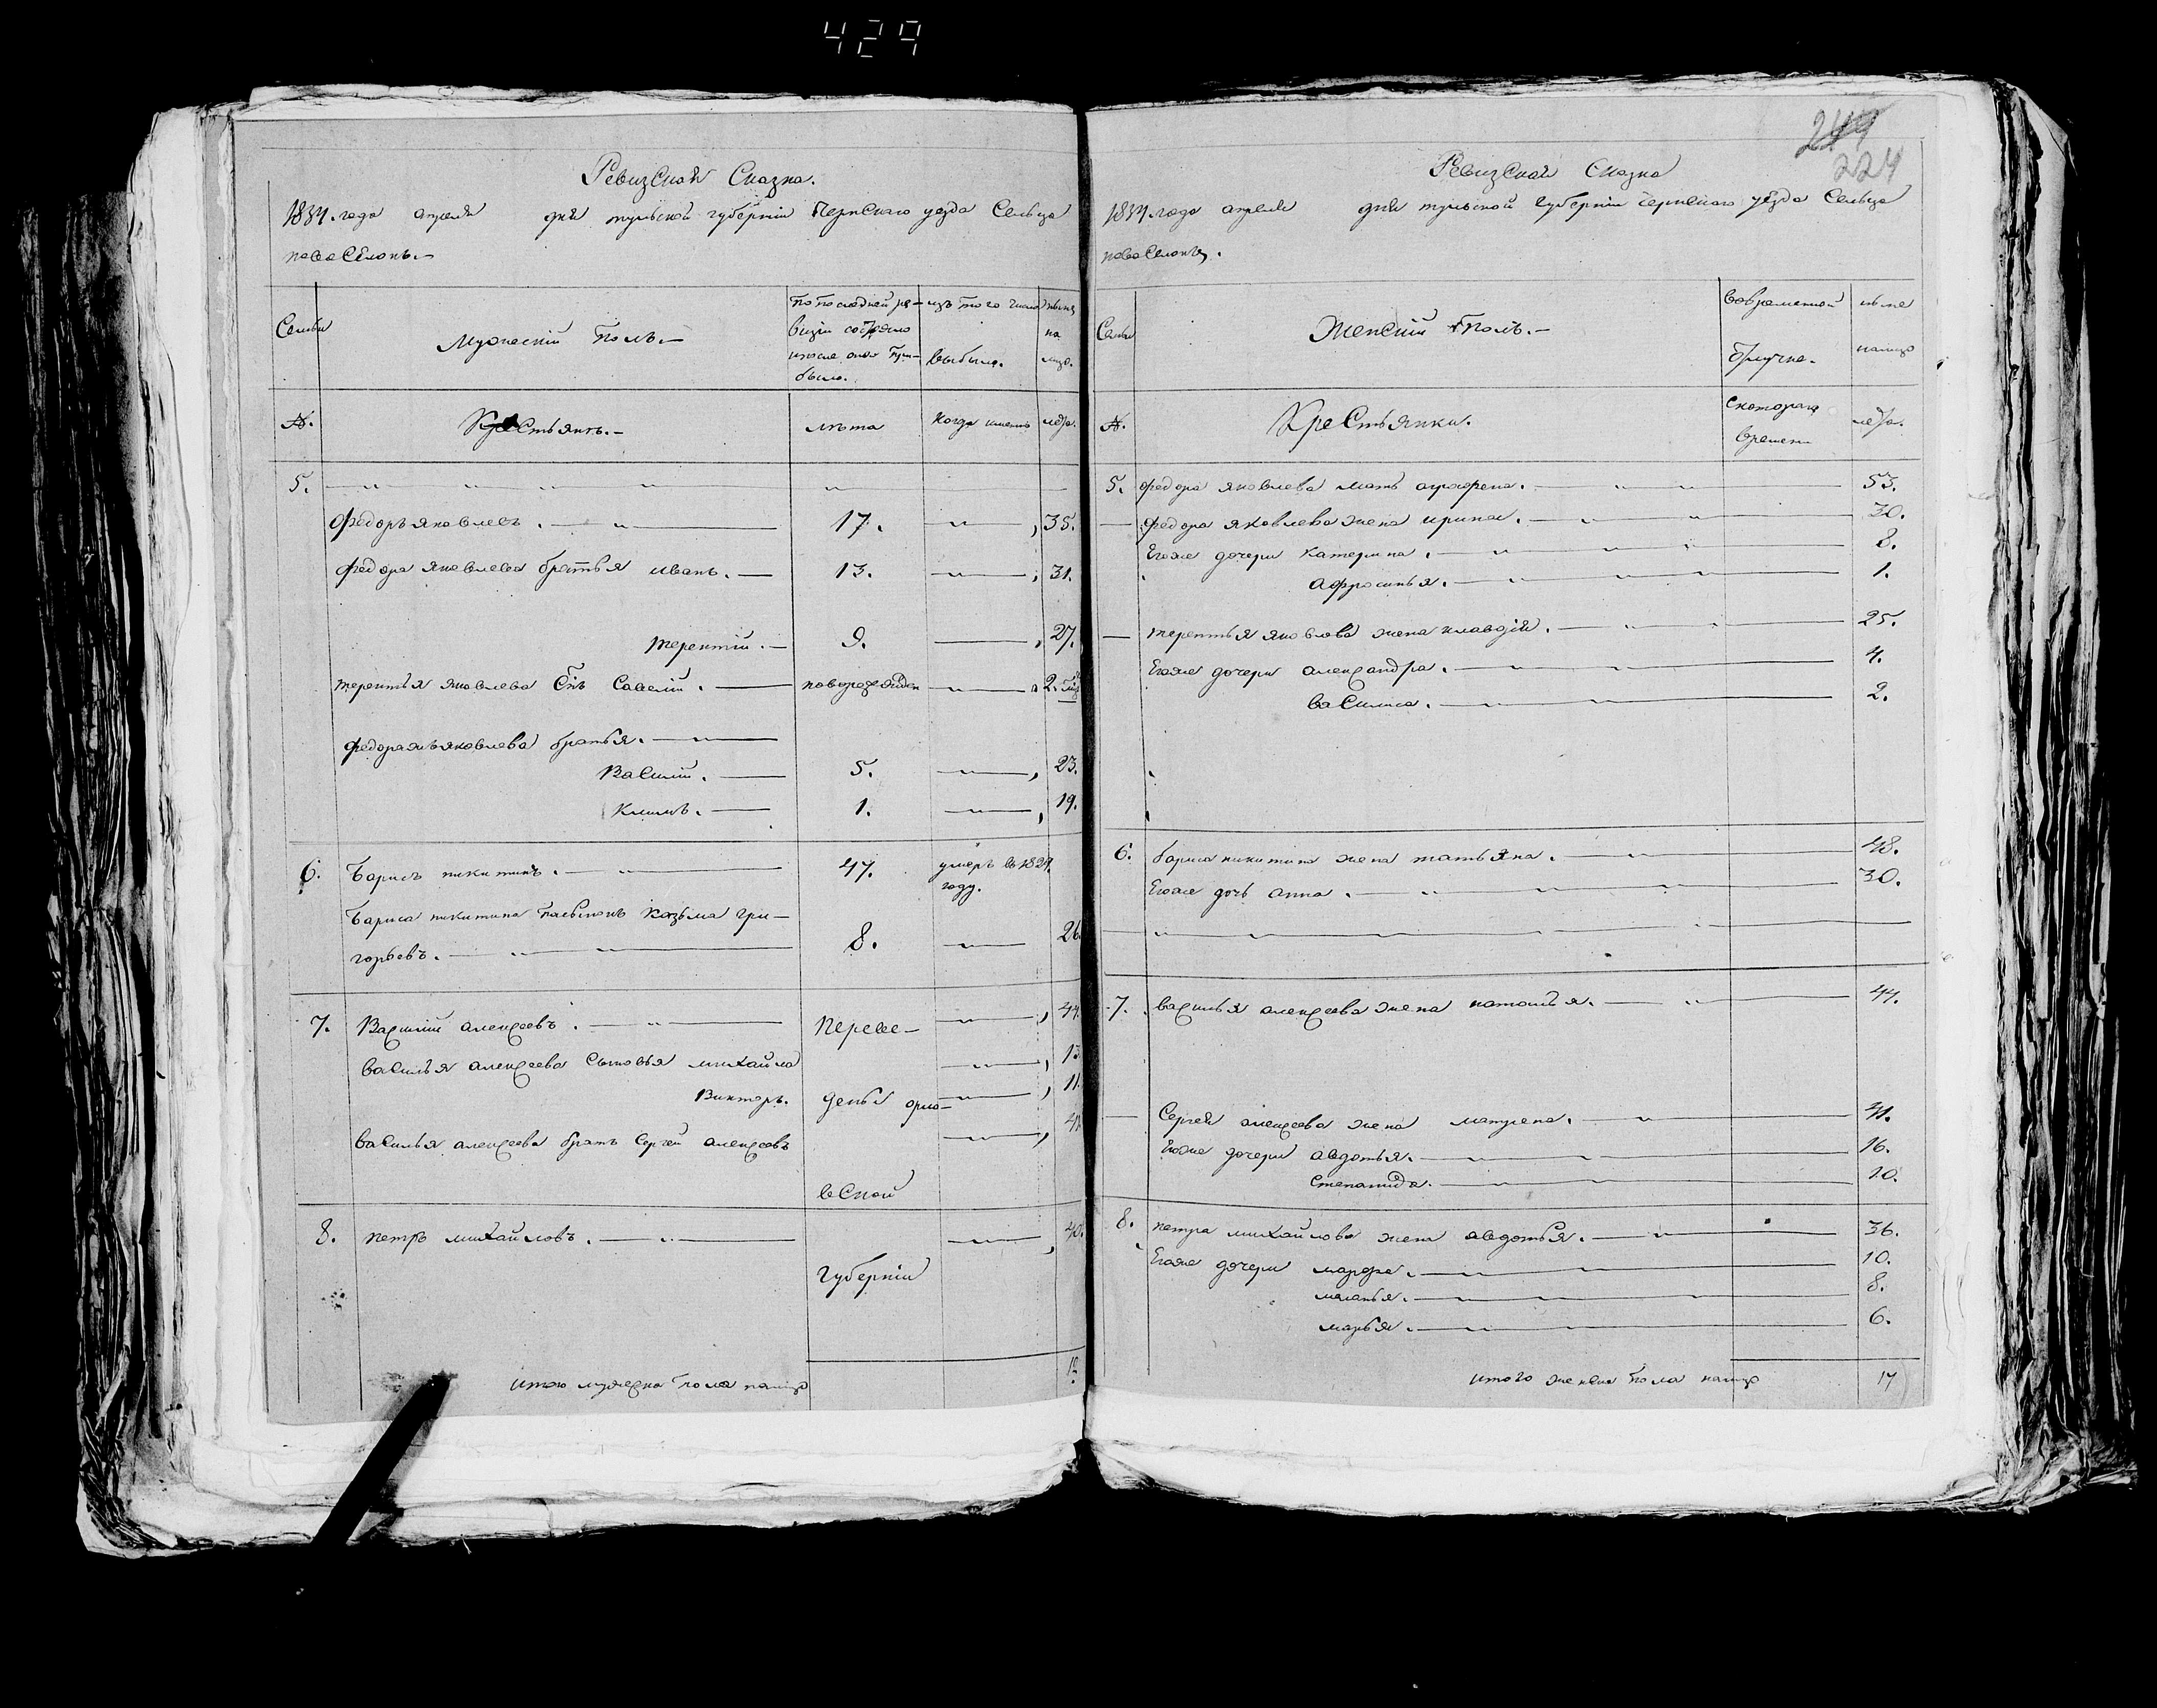 429
Ревизская Сказка.
1834. года апреля дня тульской губернiи Чернскаго уезда Сельца
новоселокъ.
Семьи
Мужескiй полъ.
По последней ре-
визiи состояло
и после оной при-
было.
изъ того числа
выбыло.
ныне
на
лицо.
№.
Крестьянъ.
лета
Когда именно
лета.
5.
Федоръ яковлевъ. 17. 35.
Федора яковлева братья иванъ. 13. 31.
терентiй. 9. 27.
терентья яковлева Снъ Савелiй. новорожден 2.
Федора яковлева братья.
Василiй. 5. 23.
Климъ. 1. 19.
6. Барисъ никитинъ. 47. умеръ въ 1829.
году.
Бариса никитина пасынокъ Казьма гри-
горьевъ. 8. 26.
7. Василiй алексеевъ. Переве- 44.
Василья алексеева Сыновья михайла 13
Викторъ. дены орло- 11.
Василья алексеева братъ Сергей алексеевъ 41
вской
8. петръ михайловъ. 40.
губернiи
итого мужеска пола налицо 12.
249
224
Ревизская Сказка
1834. года апреля дня тульской губернiи Чернскаго уезда Сельца
новоселокъ.
Семьи
Женскiй полъ.
Вовременной
отлучке.
ныне
налицо
№.
Крестьянки.
Скотораго
времени
лета.
5. Федора яковлева мать аграфена. 53.
Федора яковлева жена ирина. 30.
Егоже дочери катерина. 8.
афросинья. 1.
терентья яковлева жена клавдiя. 25.
Егоже дочери александра. 4.
василиса. 2.
6. бариса никитина жена татьяна. 48.
Егоже дочь анна. 30.
7. василья алексеева жена наталья. 44.
Сергея алексеева жена матрена. 41.
Егоже дочери авдотья. 16.
Степанида. 10.
8. петра михайлова жена авдотья. 36.
Егоже дочери марфа. 10.
маланья. 8.
марья. 6.
итого женска пола налицо 17